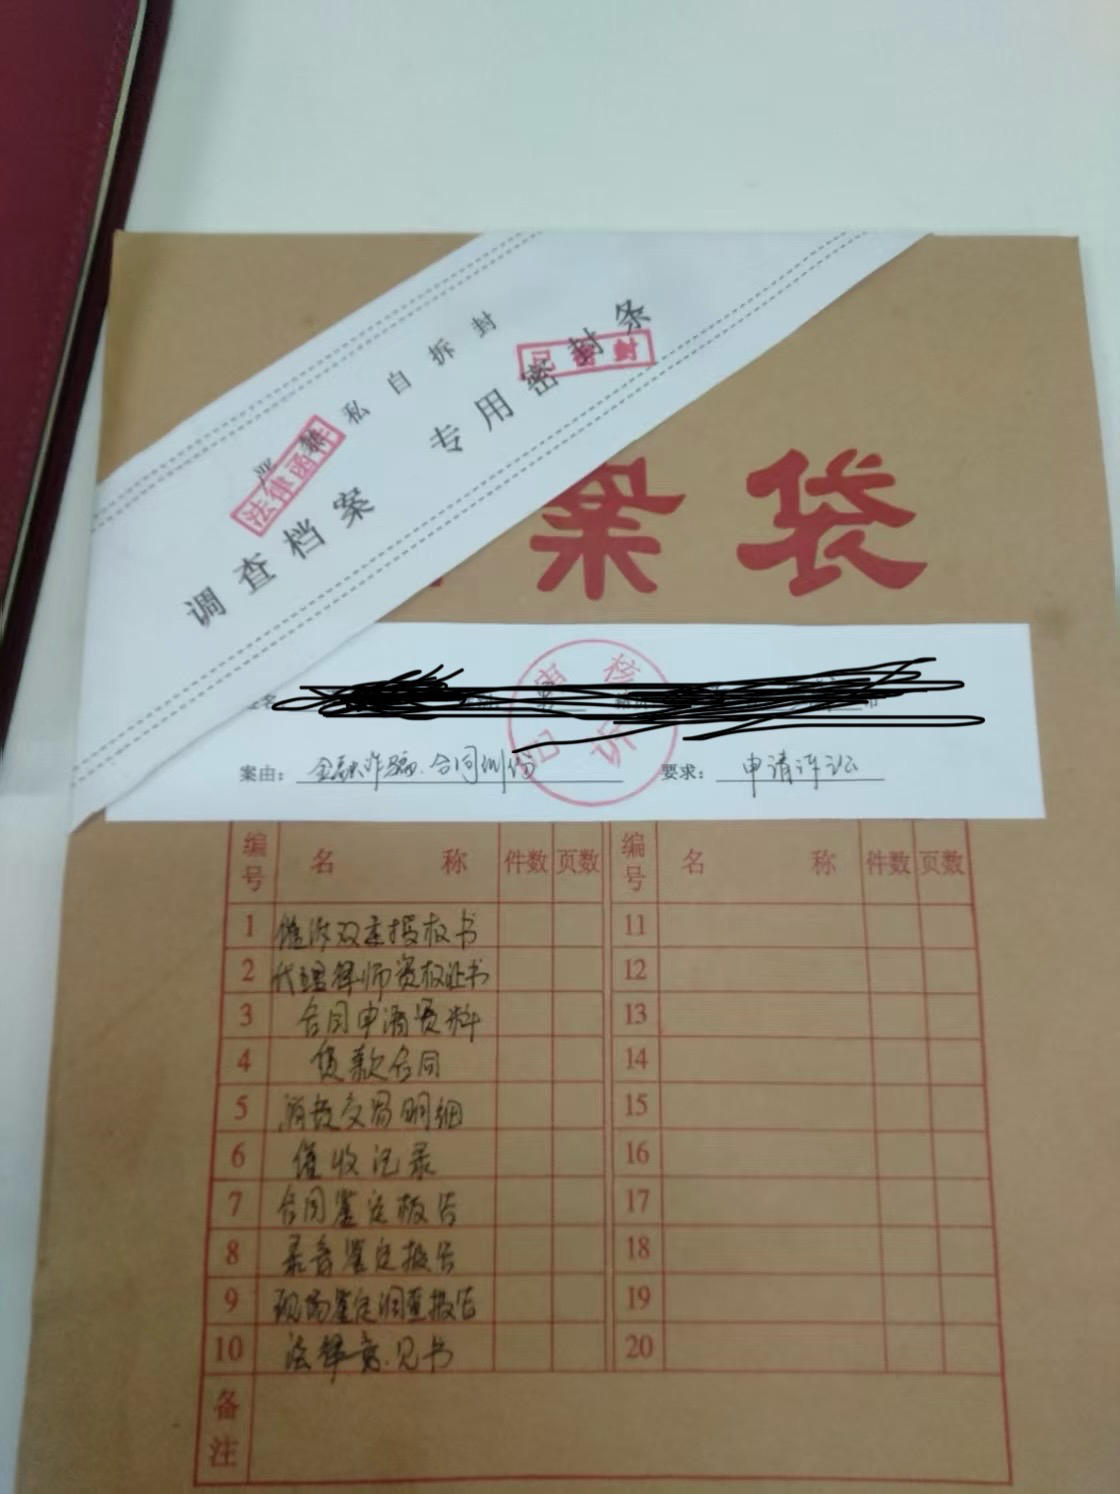 严禁私自拆封
法律函件
调查档案 专用密封条
已密封
案袋
审核
已诉
案由：金融诈骗.合同纠纷 要求：申请诉讼
编号 名称 件数 页数 编号 名称 件数 页数
1 催涉双委授权书 11
2 代理律师资格证书 12
3 合同申请资料 13
4 贷款合同 14
5 消费交易明细 15
6 催收记录 16
7 合同鉴定报告 17
8 录音鉴定报告 18
9 现场鉴定调查报告 19
10 法律意见书 20
备注